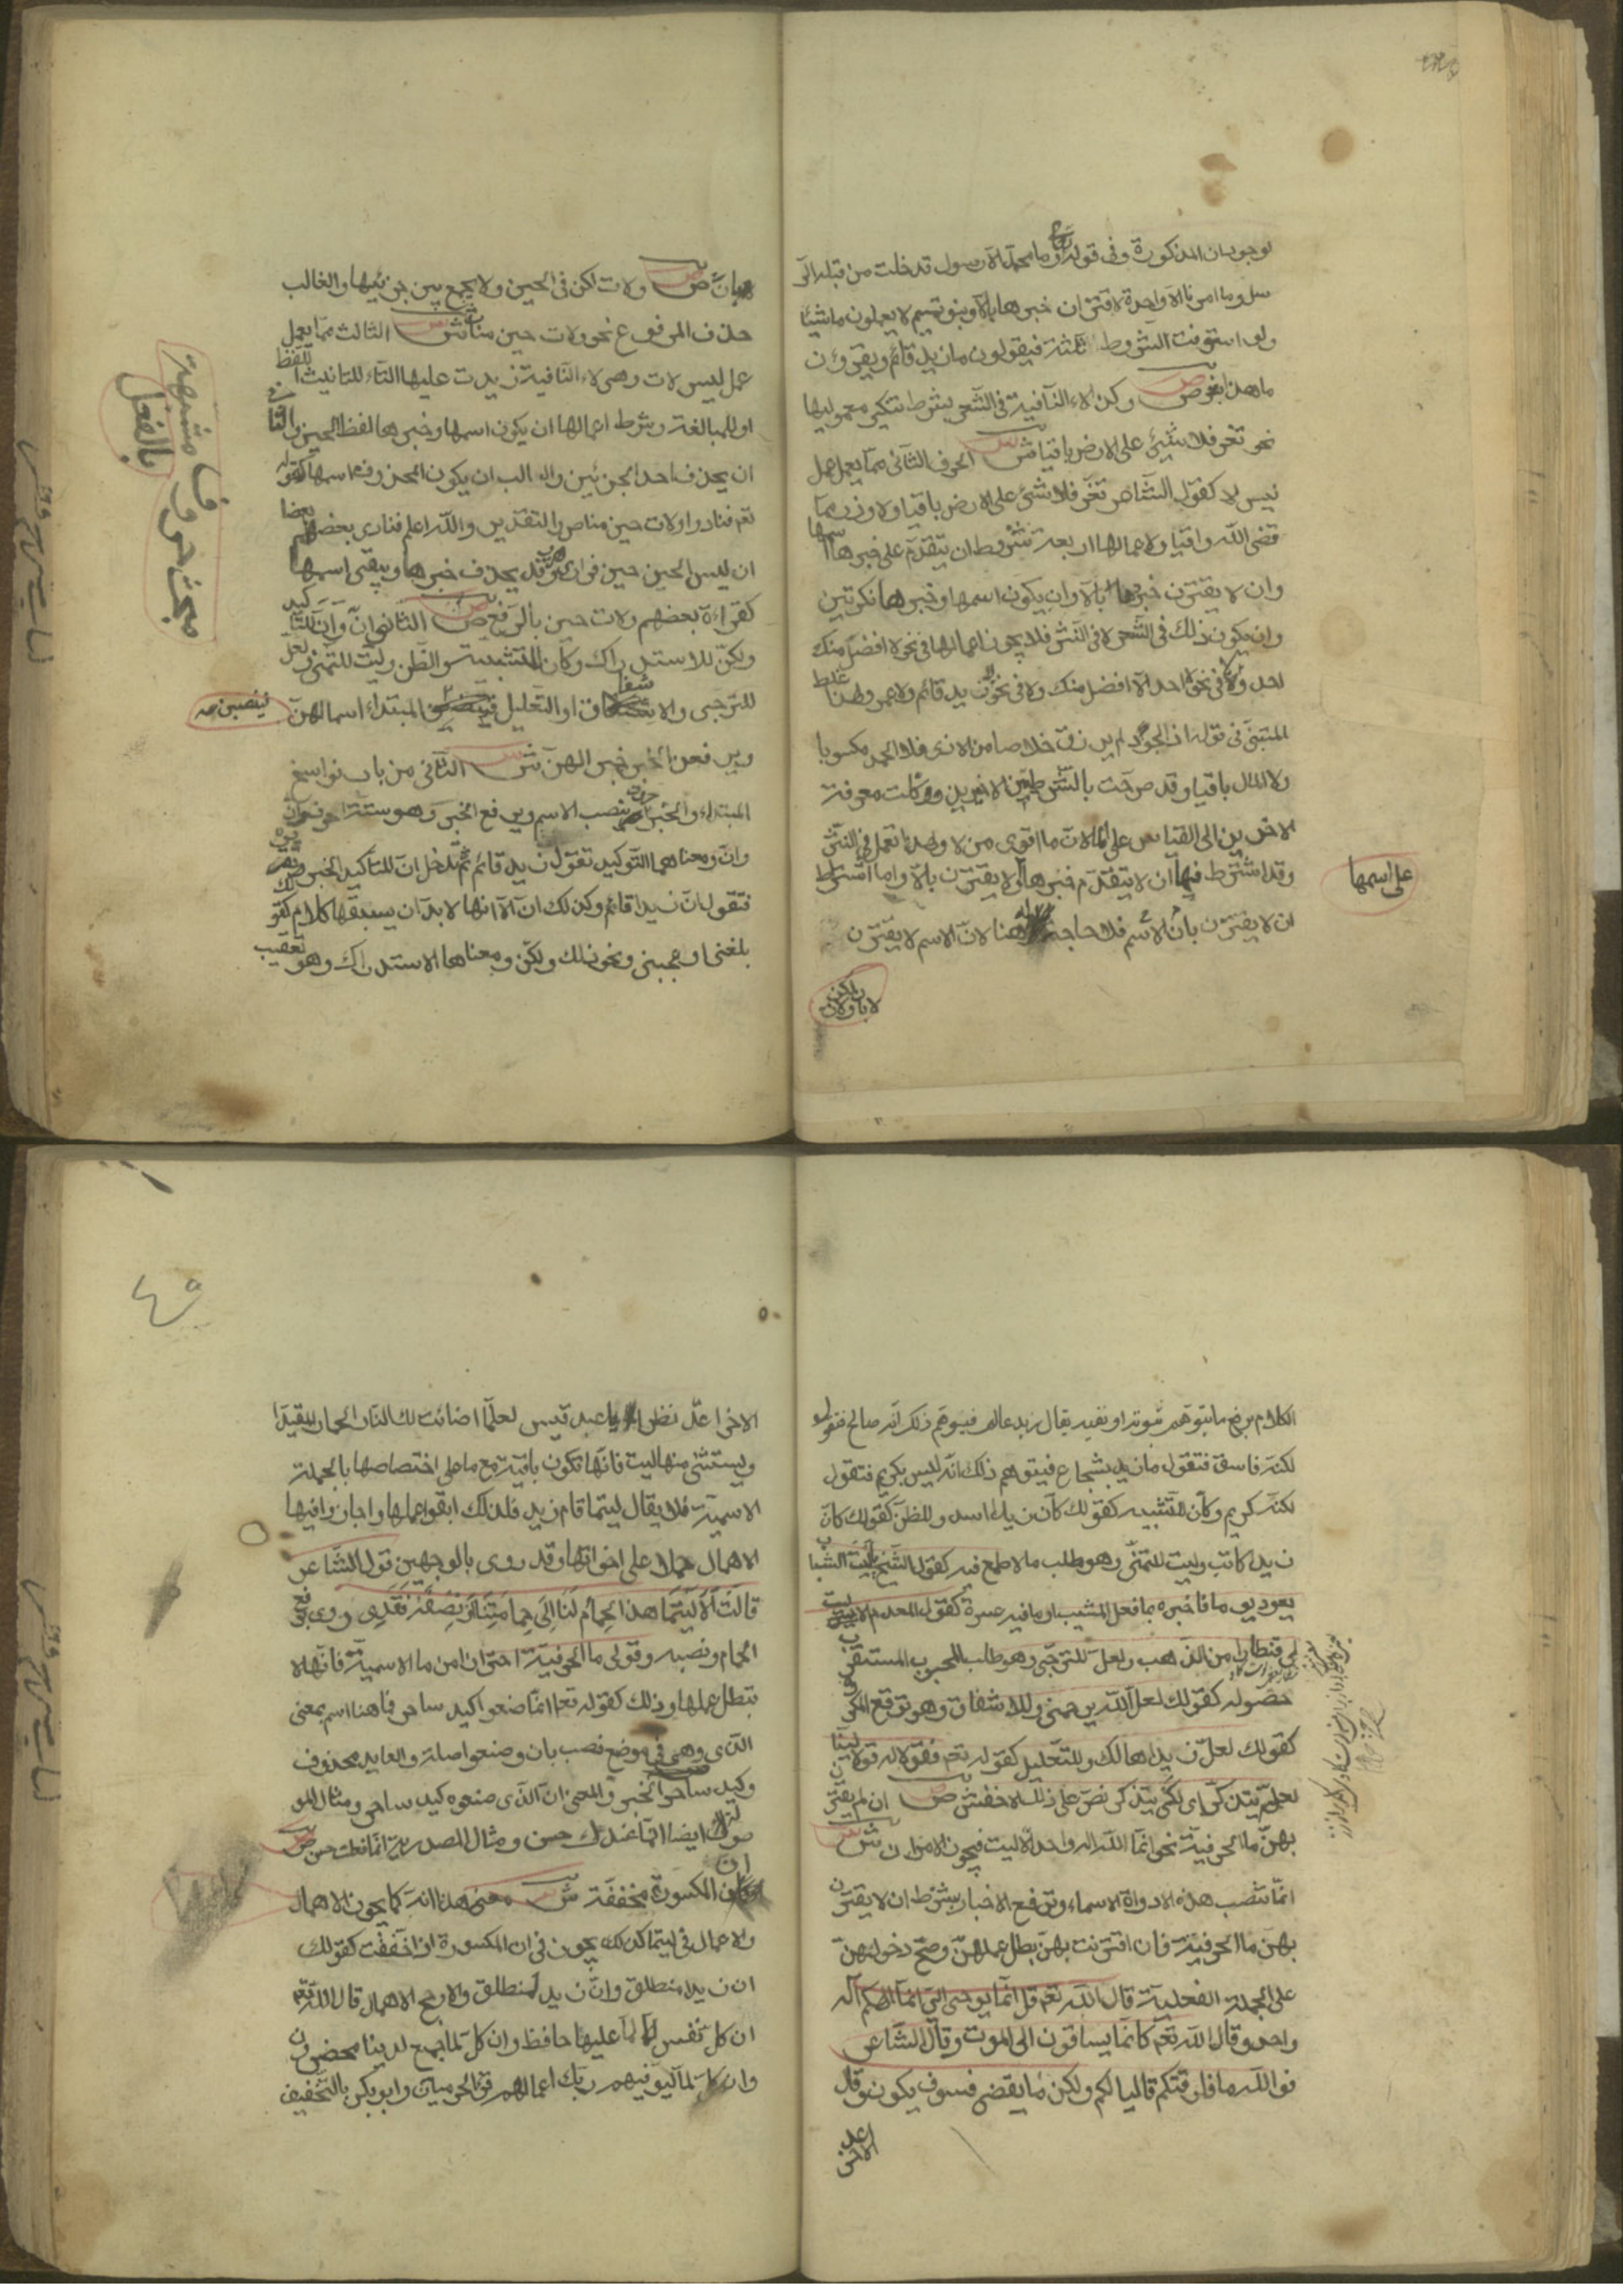 لوجود ان المذكورة وفى قوله تع وما محمد الا رسول قد خلت من قبله الر
سل وما امرنا الا واحدة لاقتران خبرها بالا وبنو تميم لا يعملون ما شيئا
ولو استوفت الشروط الثلثة فيقولون ما زيد قائم ويقرؤن
ما هذا بشر ص وكذا لاء النافية فى الشعر بشرط تنكير معموليها
نحو تعز فلا شيئ على الارض باقيا ش الحرف الثانى مما يعمل عمل
ليس لا كقول الشاعر تعز فلا شئ على الارض باقيا ولا وزر مما
قضى الله واقيا ولاعمالها اربعة شروط ان يتقدم اسمها على خبرها
وان لا يقترن خبرها بالا وان يكون اسمها وخبرها نكرتين
وان يكون ذلك فى الشعر لا فى النثر فلا يجوز اعمالها فى نحو لا افضل منك
احد ولا فى نحو لا احد الا افضل منك ولا فى نحو لا زيد قائم ولا عمرو ولهذا غلط
المتنبى فى قوله اذا الجود لم يرزق خلاصا من الاذى فلا الحمد مكسوبا
ولا المال باقيا وقد صرحت بالشرطين الاخيرين ووكلت معرفة
الاخرين الى القياس على ما لان ما اقوى من لا ولهذا تعمل فى النثر
وقد اشترط فيها ان لا يتقدم خبرها ولا يقترن بالا واما اشتراط
على اسمها
ان لا يقترن بان الاسم فلا حاجة له هنا لان الاسم لا يقترن
بان ص ولات لكن فى الحين ولا يجمع بين جزئيها والغالب
حذف المرفوع نحو ولات حين مناص ش الثالث مما يعمل
عمل ليس لات وهى لاء النافية زيدت عليها التاء للتانيث اللفظ
او للمبالغة وشرط اعمالها ان يكون اسمها وخبرها لفظ الحين والثانى
ان يحذف احد الجزئين والغالب ان يكون المحذوف اسمها كقوله
تع فنادوا ولات حين مناص والتقدير والله اعلم فنادى بعضهم بعضا
ان ليس الحين حين فرار وقد يحذف خبرها ويبقى اسمها
كقراءة بعضهم ولات حين بالرفع ص الثانى ان وان للتاكيد
ولكن للاستدراك وكان للتشبيه والظن وليت للتمنى ولعل
للترجى والاشفاق او التعليل فينصبن المبتداء اسما لهن
ويرفعن الخبر خبرا لهن ش الثانى من باب نواسخ
المبتداء والخبر ما ينصب الاسم ويرفع الخبر وهو ستة احرف ان
وان ومعناهما التوكيد تقول زيد قائم ثم تدخل ان لتاكيد الخبر
فتقول ان زيدا قائم وكذلك ان الا انها لا بد ان يسبقها كلام كقولك
بلغنى او اعجبنى ونحو ذلك ولكن ومعناها الاستدراك وهو تعقيب
مبحث حروف مشبهة
بالفعل
الكلام برفع ما يتوهم ثبوته او نفيه يقال زيد عالم فيوهم ذلك انه صالح فتقول
لكنه فاسق فتقول ما زيد بشجاع فيتوهم ذلك انه ليس بكريم فتقول
لكنه كريم وكان للتشبيه كقولك كان زيدا اسد وللظن كقولك كان
زيد كاتب وليت للتمنى وهو طلب ما لا طمع فيه كقول الشيخ ليت الشباب
يعود يوما فاخبره بما فعل المشيب او ما فيه عسرة كقول المعدم ليت
لى قنطارا من الذهب ولعل للترجى وهو طلب المحبوب المستقرب
حصوله كقولك لعل الله يرحمنى وللاشفاق وهو توقع المكروه
كقولك لعل زيدا هالك وللتعليل كقوله تعم فقولا له قولا لينا
لعله يتذكر اى لكى يتذكر نص على ذلك الاخفش ص ان لم يقترن
بهن ما الحرفية نحو انما الله اله واحد الا ليت فيجوز الامران ش
انما تنصب هذه الادواة الاسماء وترفع الاخبار بشرط ان لا يقترن
بهن ما الحرفية فان اقترنت بهن بطل عملهن وصح دخولهن
على الجملة الفعلية قال الله تعم قل انما يوحى الى انما الهكم اله
واحد وقال الله تعم كانما يساقون الى الموت وقال الشاعر
فوالله ما فارقتكم قاليا لكم ولكن ما يقضى فسوف يكون وقال
الاخر
٤٩
الاخر اعد نظرا يا عبد قيس لعلما اضائت لك النار الحمار المقيدا
ويستثنى منها ليت فانها تكون باقية مع ما على اختصاصها بالجملة
الاسمية فلا يقال ليتما قام زيد فلذلك ابقوا عملها واجازوا فيها
الاهمال حملا على اخواتها وقد روى بالوجهين قول الشاعر
قالت الا ليتما هذا الحمام لنا الى حمامتنا او نصفه فقد روى برفع
الحمام ونصبه وقولى ما الحرفية احترازا من ما الاسمية فانها لا
تبطل عملها وذلك كقوله تعم انما صنعوا كيد ساحر فما هنا اسم بمعنى
الذى وهى فى موضع نصب بان وصنعوا صلة والعايد محذوف
وكيد ساحر الخبر والمعنى ان الذى صنعوه كيد ساحر ومثال المو
صولة ايضا انما عندك حسن ومثال المصدرية انما فعلت حسن ص
كان المكسورة مخففة ش معنى هذا انه كما يجوز الاهمال
والاعمال فى ليتما كذلك يجوز فى ان المكسورة اذا خففت كقولك
ان زيدا منطلق وان زيد لمنطلق والارجح الاهمال قال الله تعم
ان كل نفس لما عليها حافظ وان كل لما جميع لدينا محضرون
وان كلا لما ليوفينهم ربك اعمالهم قرء الحرميان وابو بكر بالتخفيف